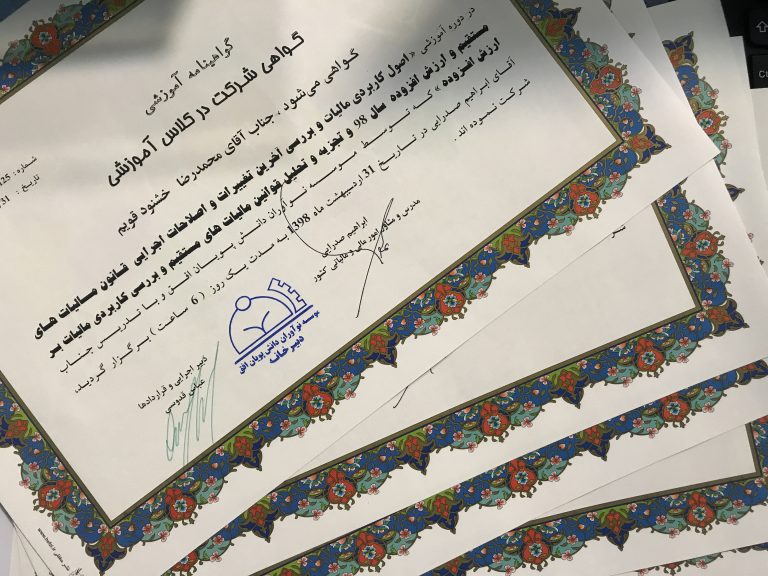 گواهینامه آموزشی
گواهی شرکت در کلاس آموزشی
شماره: 125
تاریخ: 31.
گواهی می‌شود، جناب آقای محمدرضا خشنود قویم
در دوره آموزشی « اصول کاربردی مالیات و بررسی آخرین تغییرات و اصلاحات اجرایی قانون مالیات های
مستقیم و ارزش افزوده سال 98 و تجزیه و تحلیل قوانین مالیات های مستقیم و بررسی کاربردی مالیات بر
ارزش افزوده » که توسط موسسه نوآوران دانش پویان افق و با تدریس جناب
آقای ابراهیم صدرایی در تاریخ 31 اردیبهشت ماه 1398 به مدت یک روز (6 ساعت) برگزار گردید،
شرکت نموده اند.
ابراهیم صدرایی
مدرس و مشاور امور مالی و مالیاتی کشور
موسسه نوآوران دانش پویان افق
دبیرخانه
دبیر اجرایی و قراردادها
عباس قدوسی
Ct